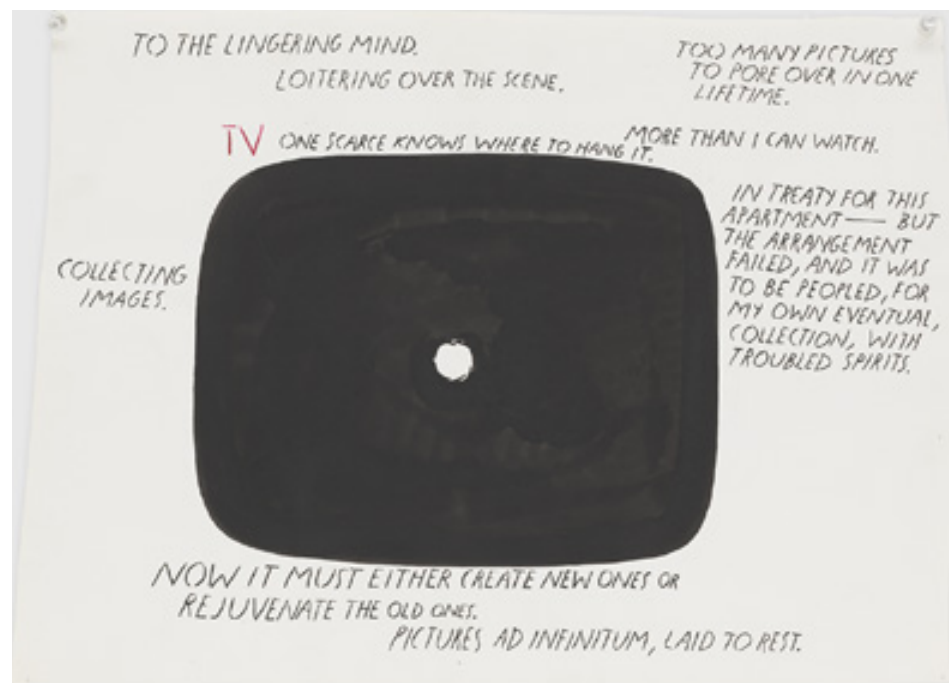 TO THE LINGERING MIND.
LOITERING OVER THE SCENE.
TOO MANY PICTURES
TO PORE OVER IN ONE
LIFETIME.
TV ONE SCARCE KNOWS WHERE TO HANG IT.
MORE THAN I CAN WATCH.
COLLECTING
IMAGES.
IN TREATY FOR THIS
APARTMENT — BUT
THE ARRANGEMENT
FAILED, AND IT WAS
TO BE PEOPLED, FOR
MY OWN EVENTUAL,
COLLECTION, WITH
TROUBLED SPIRITS.
NOW IT MUST EITHER CREATE NEW ONES OR
REJUVENATE THE OLD ONES.
PICTURES AD INFINITUM, LAID TO REST.